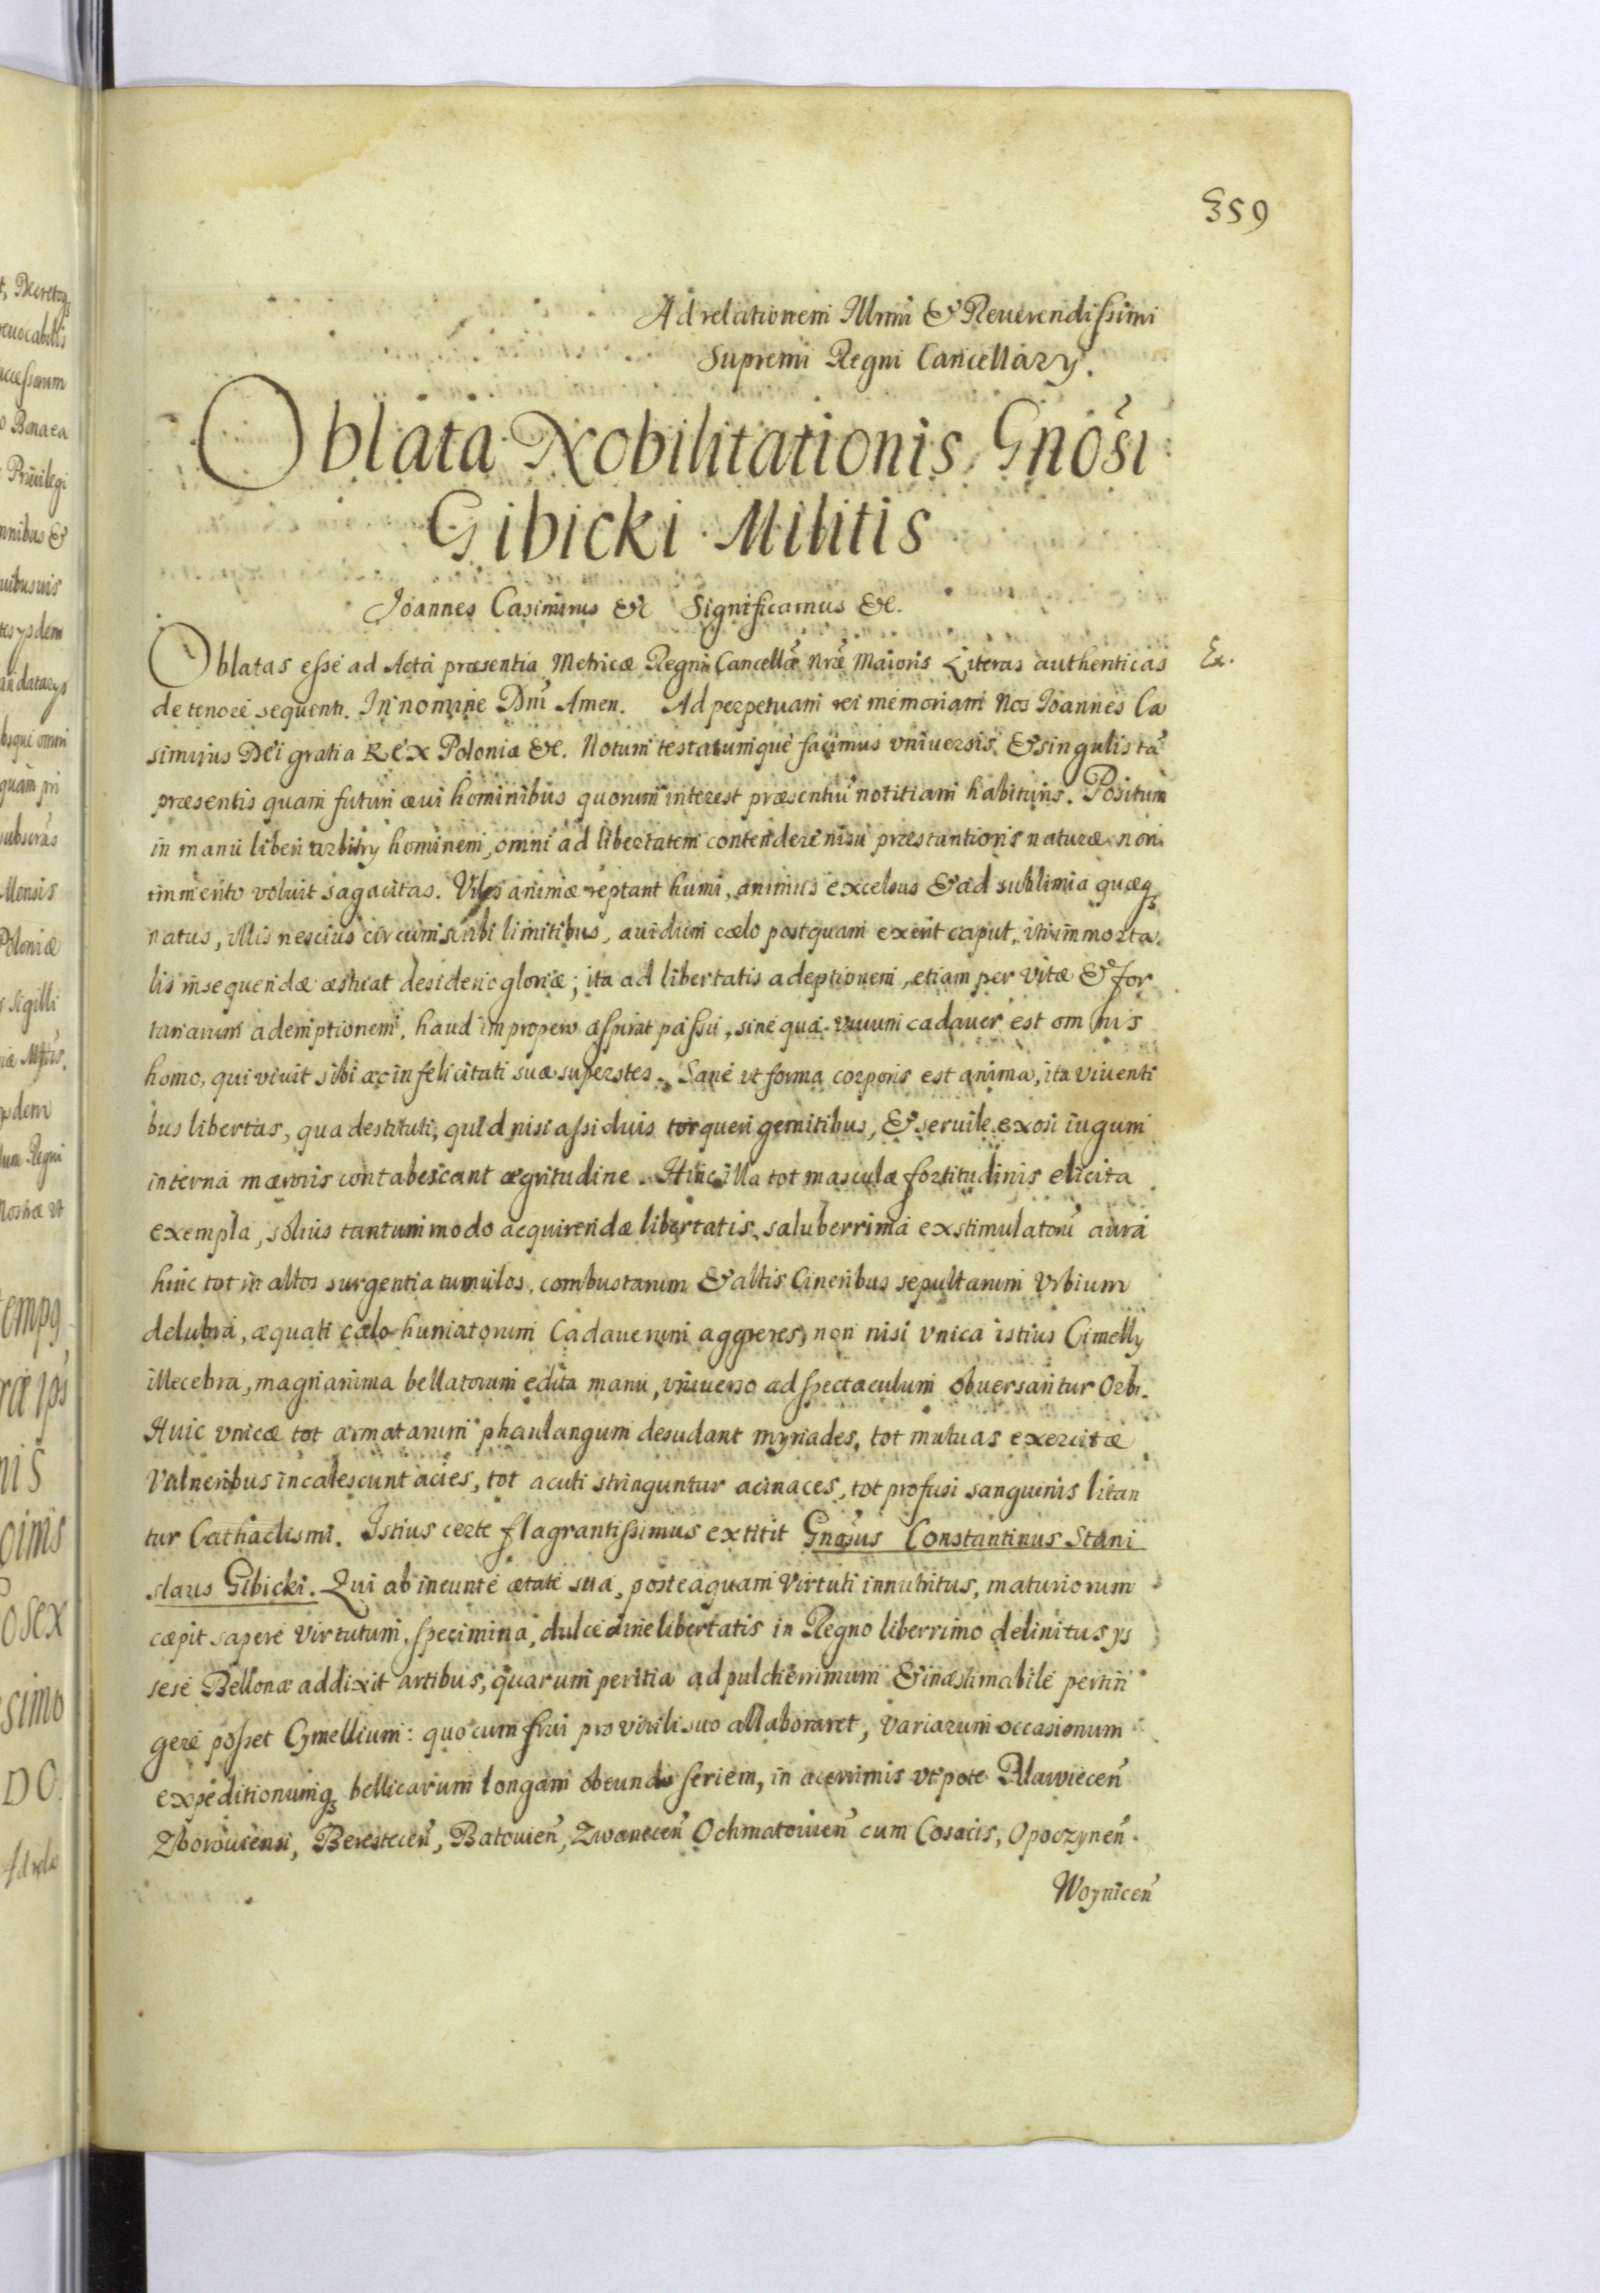 359
Ad relationem Illmi & Reuerendissimi
Supremi Regni Cancellarij.
Oblata Nobilitationis Gnosi
Gibicki Militis
Joannes Casimirus &c Significamus &c.
Oblatas esse ad Acta præsentia Metricæ Regni Cancellæ nræ Maioris Literas authenticas
Ex.
de tenore sequenti. In nomine Dni Amen. Ad perpetuam rei memoriam Nos Joannes Ca
simirus Dei gratia Rex Poloniæ &c. Notum testatumque facimus vniuersis & singulis tã
præsentis quam futuri æui hominibus quorum interest præsentiũ notitiam habituris. Positum
in manu liberi arbitrij hominem, omni ad libertatem contendere nisu præstantioris naturæ non
immerito voluit sagacitas. Viles animæ reptant humi, animus excelsus & ad sublimia quæq3
natus, vllis nescius circumscribi limitibus, auidum cælo postquam exerit caput, immorta
lis insequendæ æstuat desiderio gloriæ; ita ad libertatis adeptionem, etiam per vitæ & for
tunarum ademptionem, haud impropero aspirat passu, sine qua viuum cadauer est omnis
homo, qui viuit sibi ac infelicitati suæ superstes. Sane vt forma corporis est anima, ita viuenti
bus libertas, qua destituti, quid nisi assiduis torqueri gemitibus, & seruile exosi iugum
interna mæroris contabescant ægritudine. Hinc illa tot masculæ fortitudinis elicita
exempla, solius tantummodo acquirendæ libertatis saluberrima exstimulatorũ aura
hinc tot in altos surgentia tumulos, combustarum & altis Cineribus sepultarum Vrbium
delubra, æquati cælo humatorum Cadauerum aggeres, non nisi vnica istius Cimelij
illecebra, magnanima bellatorum edita manu, vniuerso ad spectaculum obuersantur Orbi.
Huic vnicæ tot armatarum phaulangum desudant myriades, tot mutuas exercitæ
Vulneribus incalescunt acies, tot acuti stringuntur acinaces, tot profusi sanguinis litan
tur Cathaclismi. Istius certe flagrantissimus extitit Gnosus Constantinus Stani
slaus Gibicki. Qui ab ineunte ætate sua, posteaquam Virtuti innutritus, maturiorum
cæpit sapere virtutum specimina, dulcedine libertatis in Regno liberrimo delinitus ijs
sese Bellonæ addixit artibus, quarum peritia ad pulcherrimum & inæstimabile pertin
gere posset Cymellium: quo cum frui pro virili suo allaboraret, variarum occasionum
expeditionumq3 bellicarum longam obeundo seriem, in acerrimis vt pote Pilawiecen̄
Zborouiensi, Berestecen̄, Batouien̄, Zwanecen̄ Ochmatouien̄ cum Cosacis, Opoczynen̄
Woynicen̄